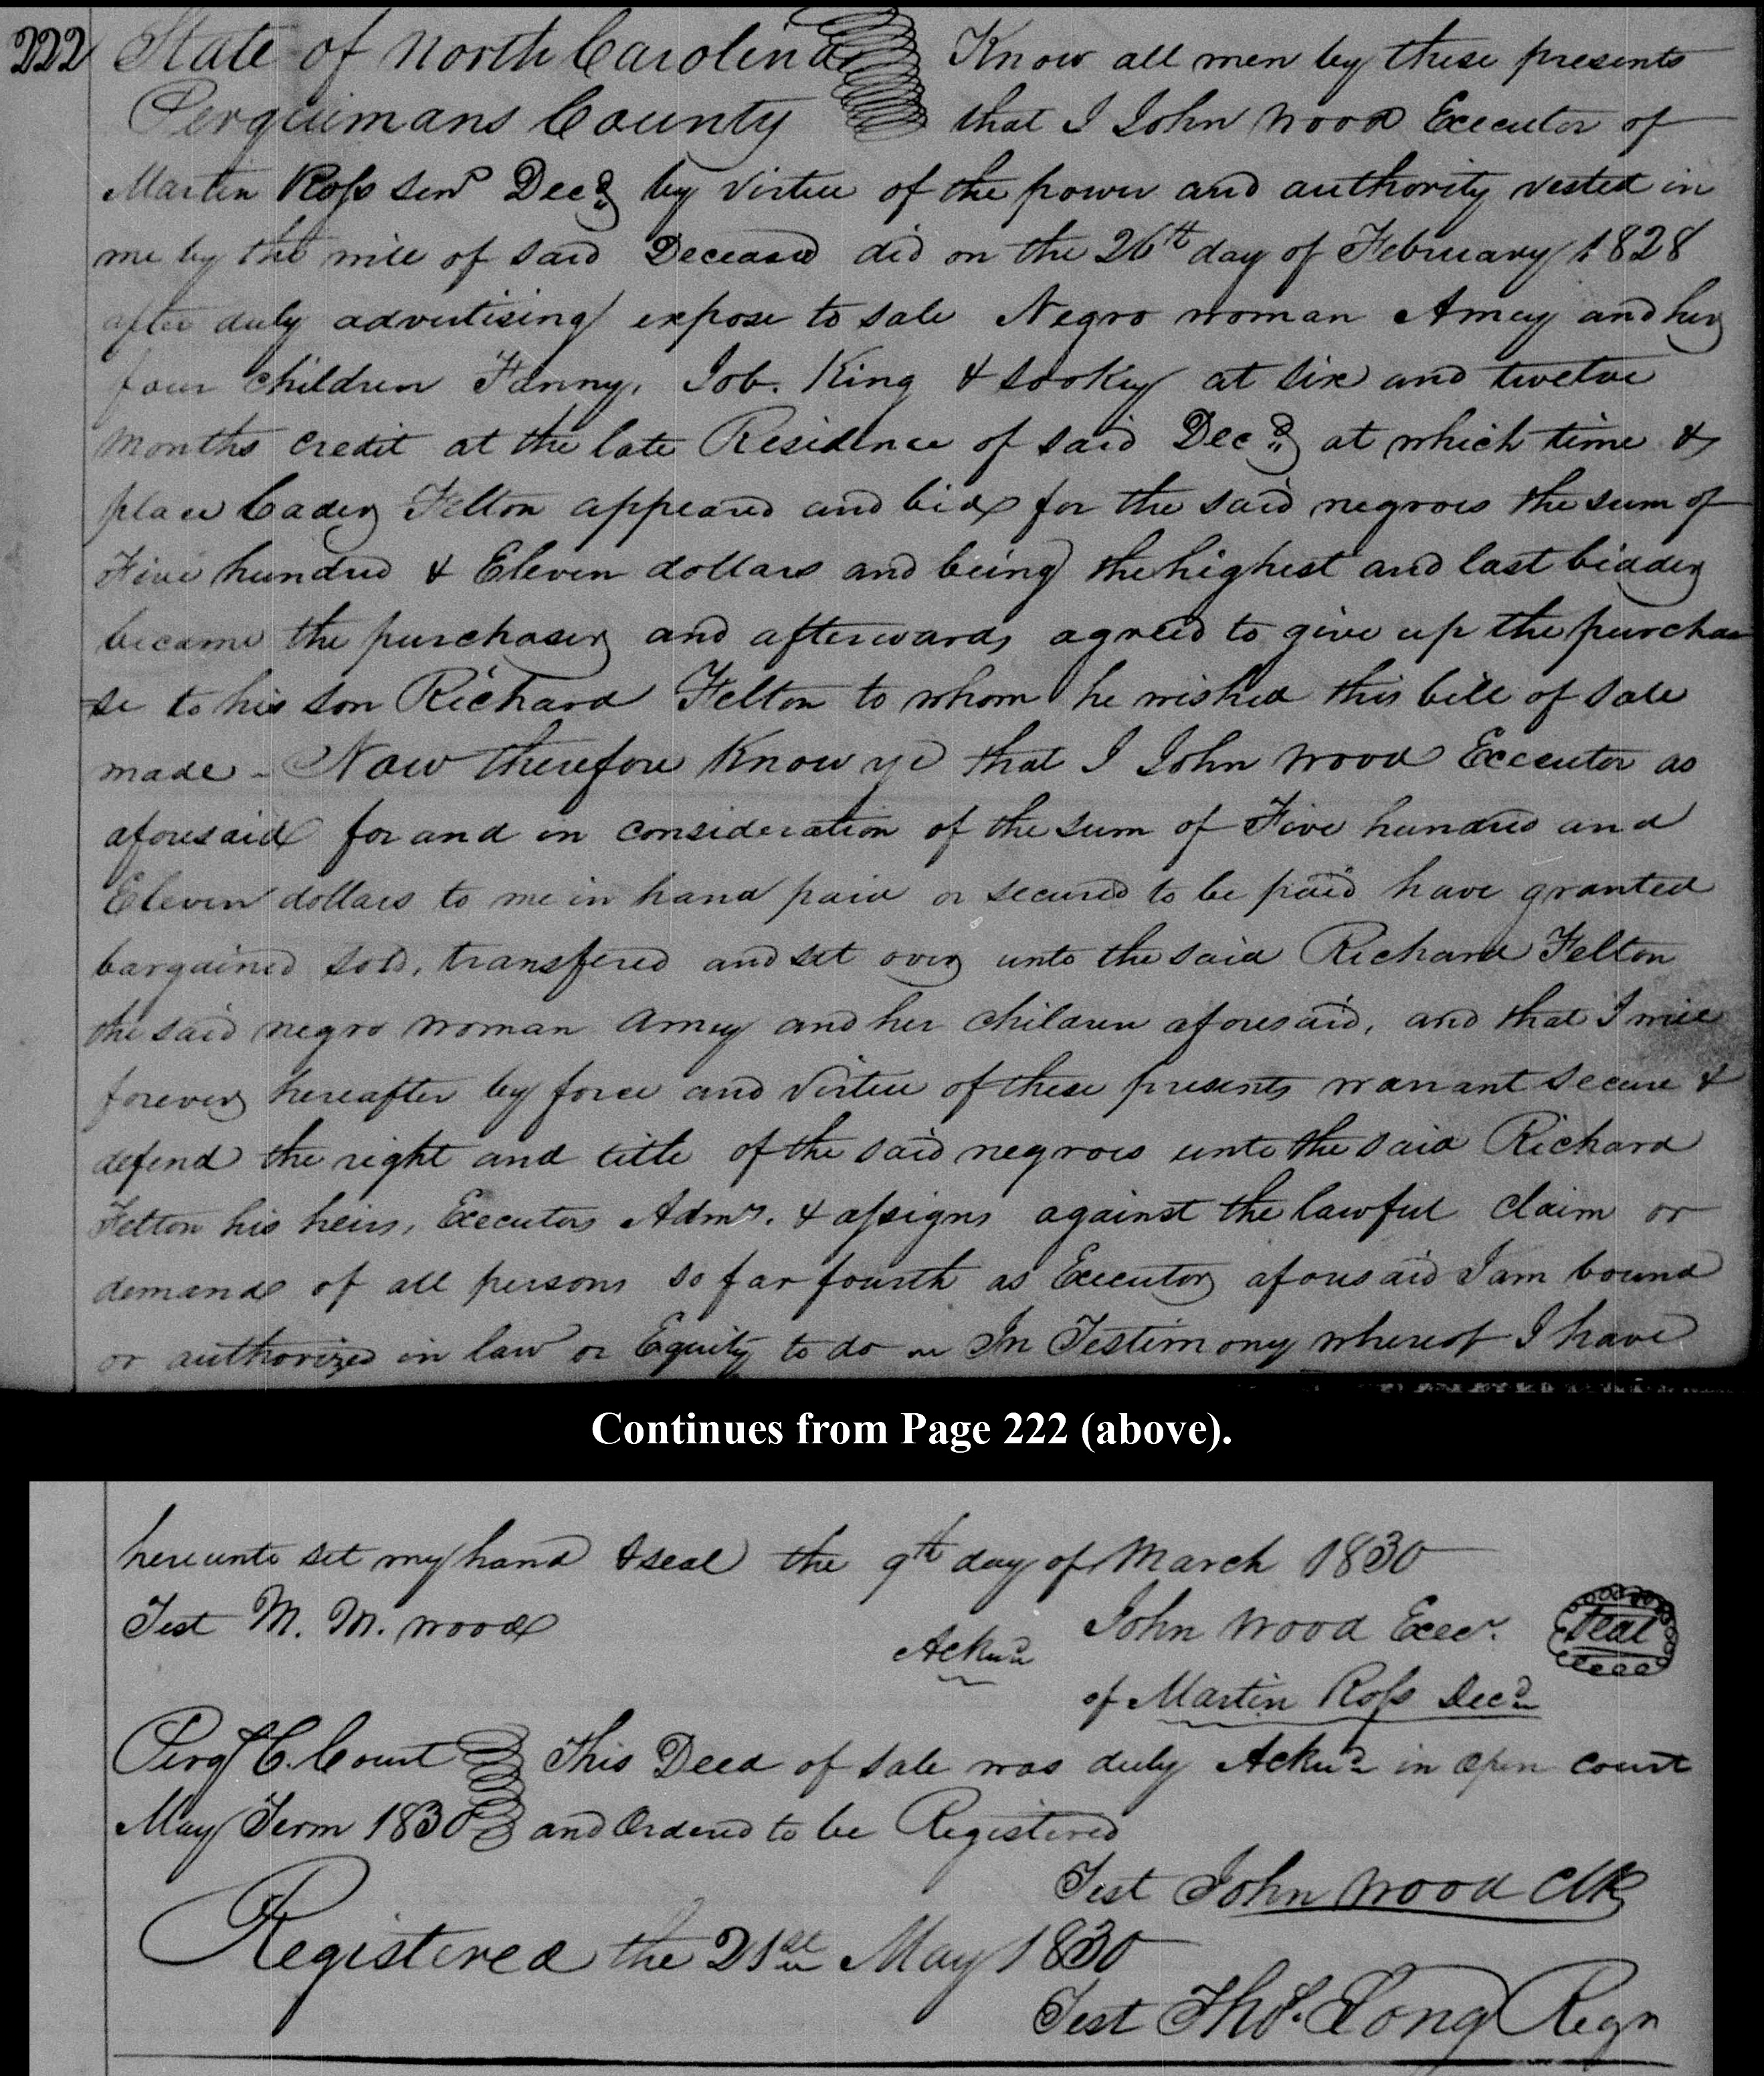 222 State of North Carolina Know all men by these presents
Perquimans County that I John Wood Executor of
Martin Ross Senr Decd by virtue of the power and authority vested in
me by the will of said Deceased did on the 26th day of February 1828
after duly advertising expose to sale Negro woman Amey and her
four children Fanny, Job. King & Sookey at six and twelve
months credit at the late Residence of said Decd at which time &
place Cader Felton appeared and bid for the said negroes the sum of
Five hundred & Eleven dollars and being the highest and last bidder
became the purchaser and afterwards agreed to give up the purcha
se to his son Richard Felton to whom he wished this bill of Sale
made - Now therefore Know ye that I John Wood Executor as
aforesaid for and in consideration of the sum of Five hundred and
Eleven dollars to me in hand paid or secured to be paid have granted
bargained sold, transfered and set over unto the said Richard Felton
the said negro woman Amey and her children aforesaid, and that I will
forever hereafter by force and virtue of these presents warrant secure &
defend the right and title of the said negroes unto the said Richard
Felton his heirs, Executors Admrs. & assigns against the lawful claim or
demands of all persons so far fourth as Executor aforesaid I am bound
or authorized in law or Equity to do In Testimony whereof I have
Continues from Page 222 (above).
hereunto set my hand & seal the 9th day of March 1830
Test M. M. Wood Acknd John Wood Execr. Seal
of Martin Ross Decd
Perqs C. Court This Deed of Sale was duly Acknd in open court
May Term 1830 and Ordered to be Registered
Test John Wood Clk
Registered the 21st May 1830
Test Thos. Long Regr